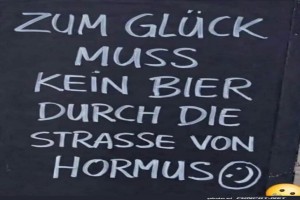 ZUM GLÜCK
MUSS
KEIN BIER
DURCH DIE
STRASSE VON
HORMUS